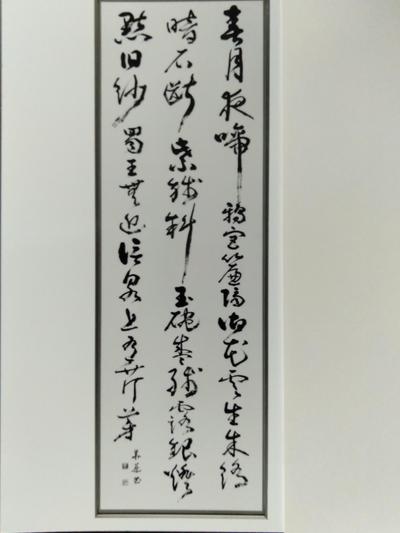 春月夜啼鴉宮簾隔御花雲生朱絡
暗石斷紫錢斜玉碗盛殘露銀燈
點旧紗蜀王無近信泉上有芹芽